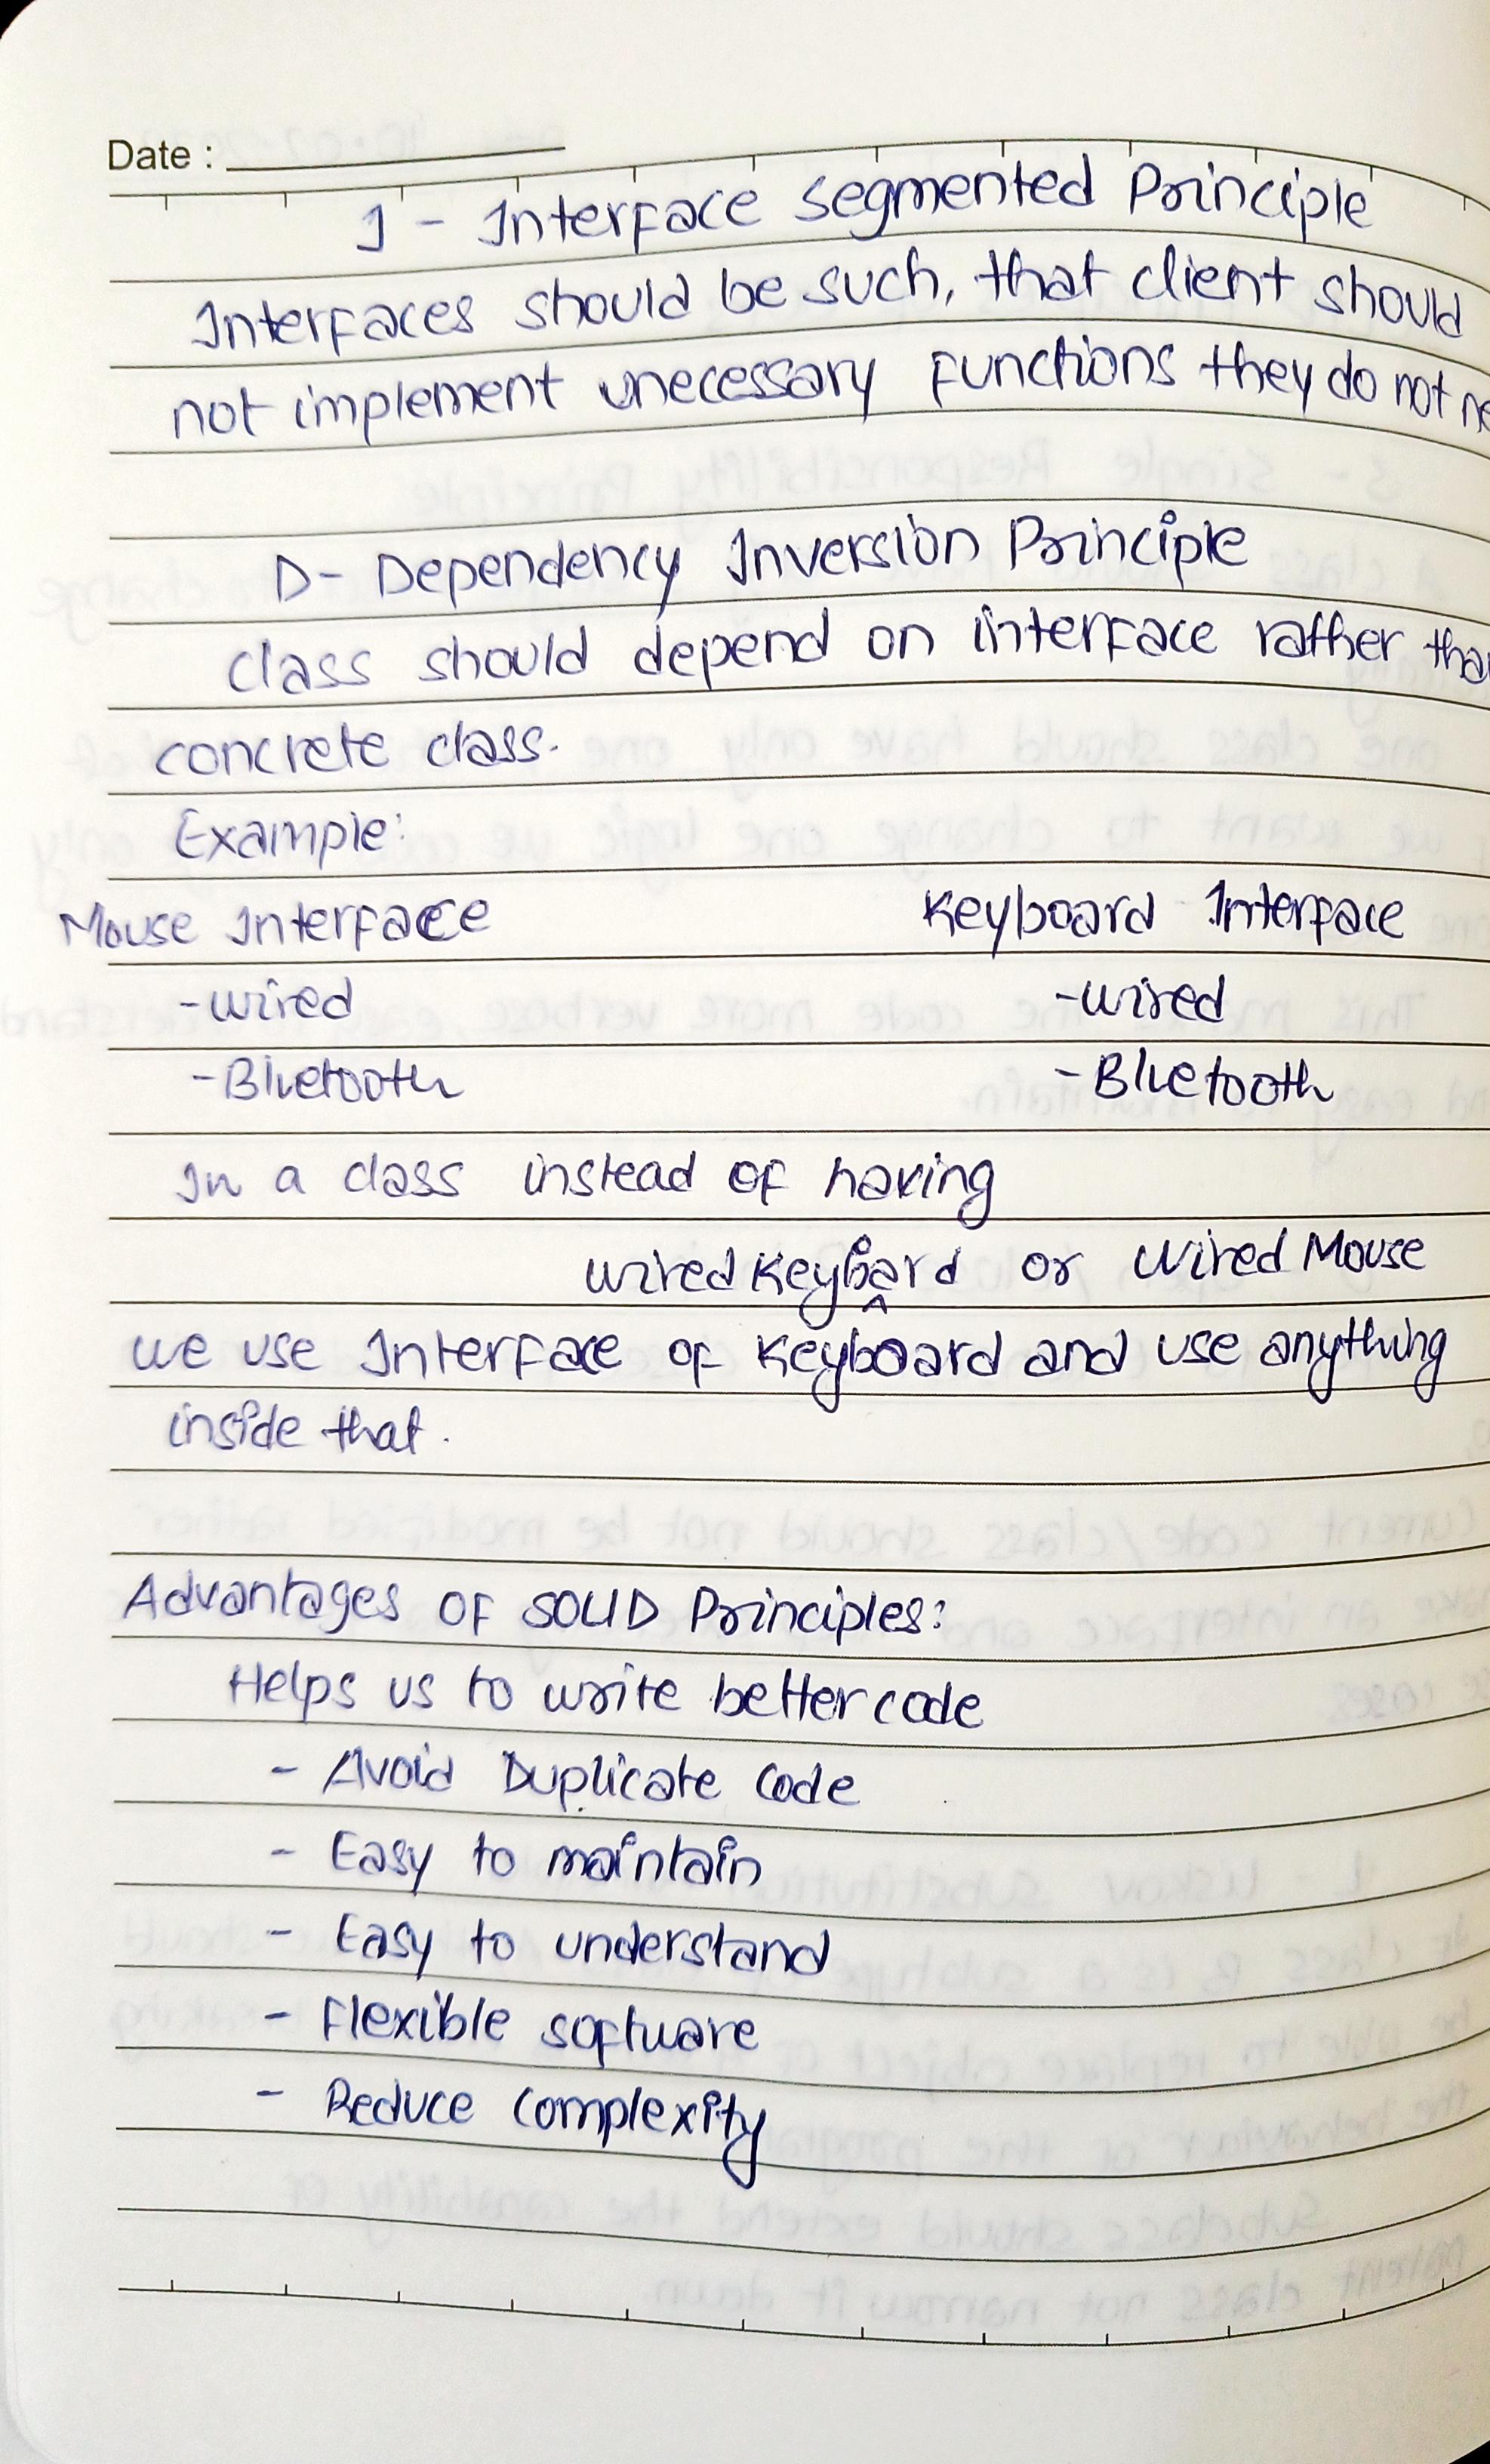 Date :
I - Interface Segmented Principle
Interfaces should be such, that client should
not implement unecessary functions they do not ne
D - Dependency Inversion Principle
class should depend on interface rather than
concrete class.
Example:
Mouse Interface Keyboard Interface
- wired - wired
- Bluetooth - Bluetooth
In a class instead of having
wired Keyboard or Wired Mouse
we use Interface of Keyboard and use anything
inside that.
Advantages of SOLID Principles:
Helps us to write better code
- Avoid Duplicate Code
- Easy to maintain
- Easy to understand
- Flexible software
- Reduce Complexity